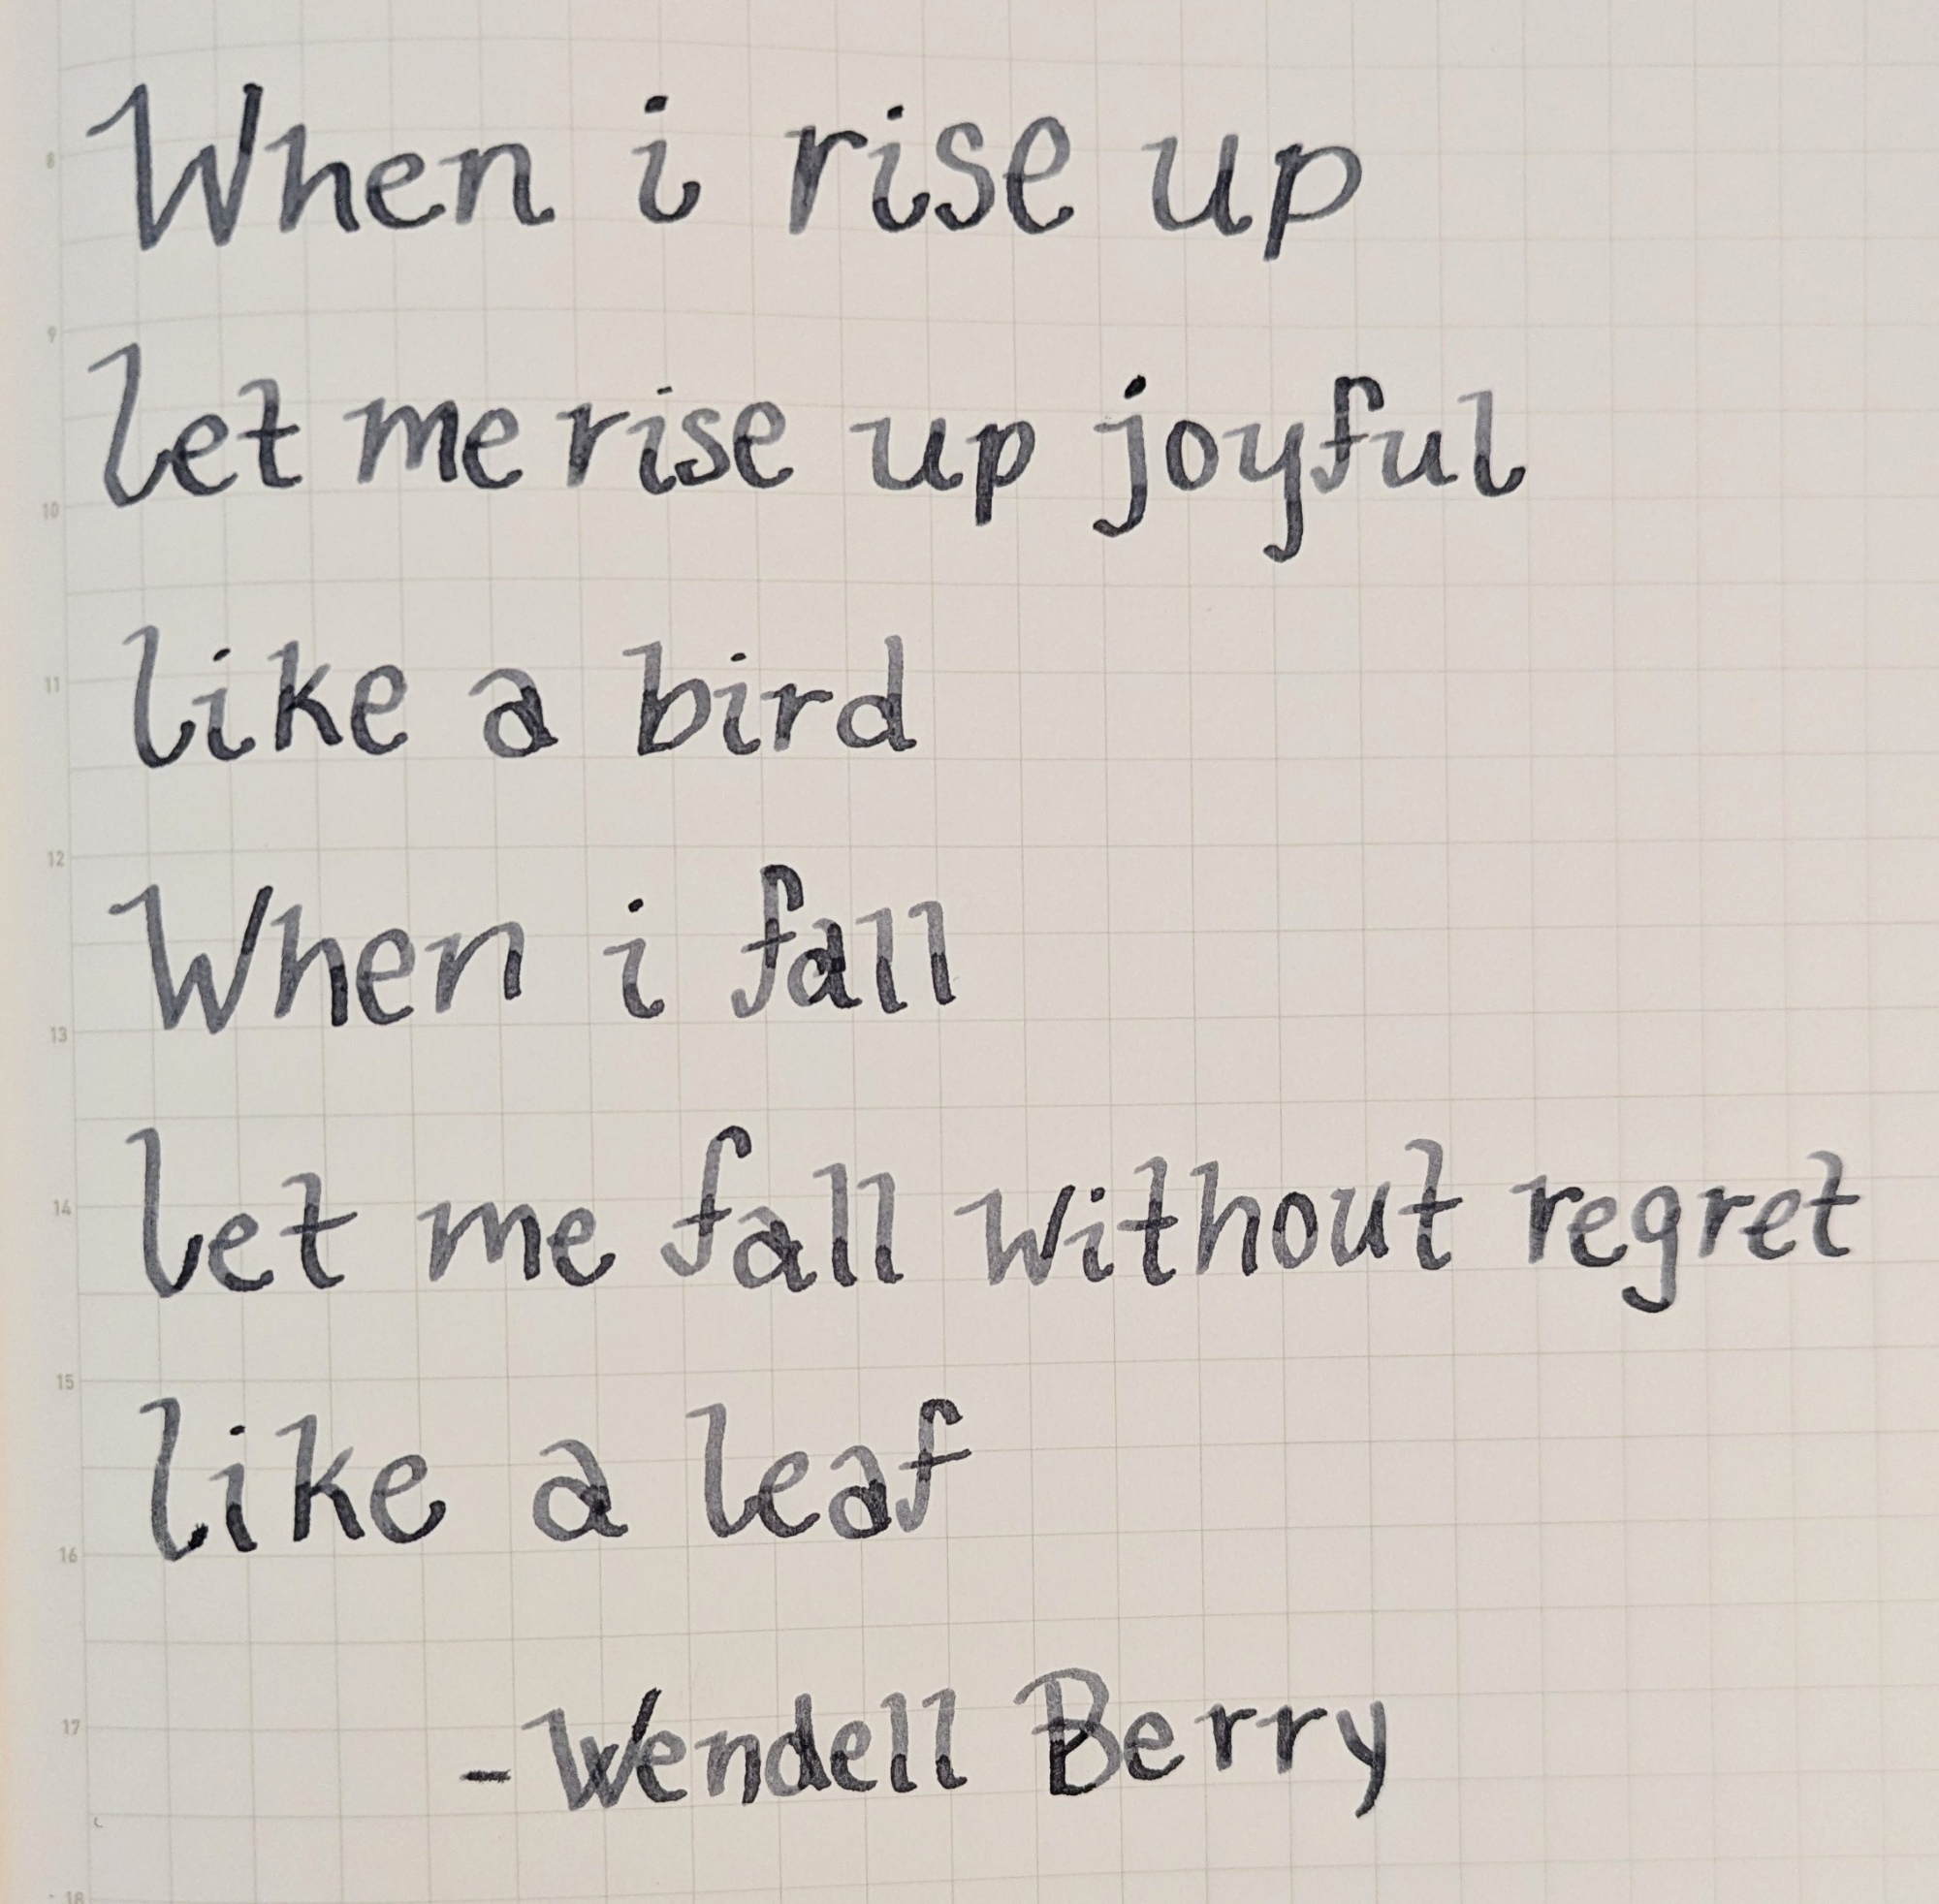 When i rise up
8
9
let me rise up joyful
10
like a bird
11
12
When i fall
13
let me fall without regret
14
15
like a leaf
16
-Wendell Berry
17
18